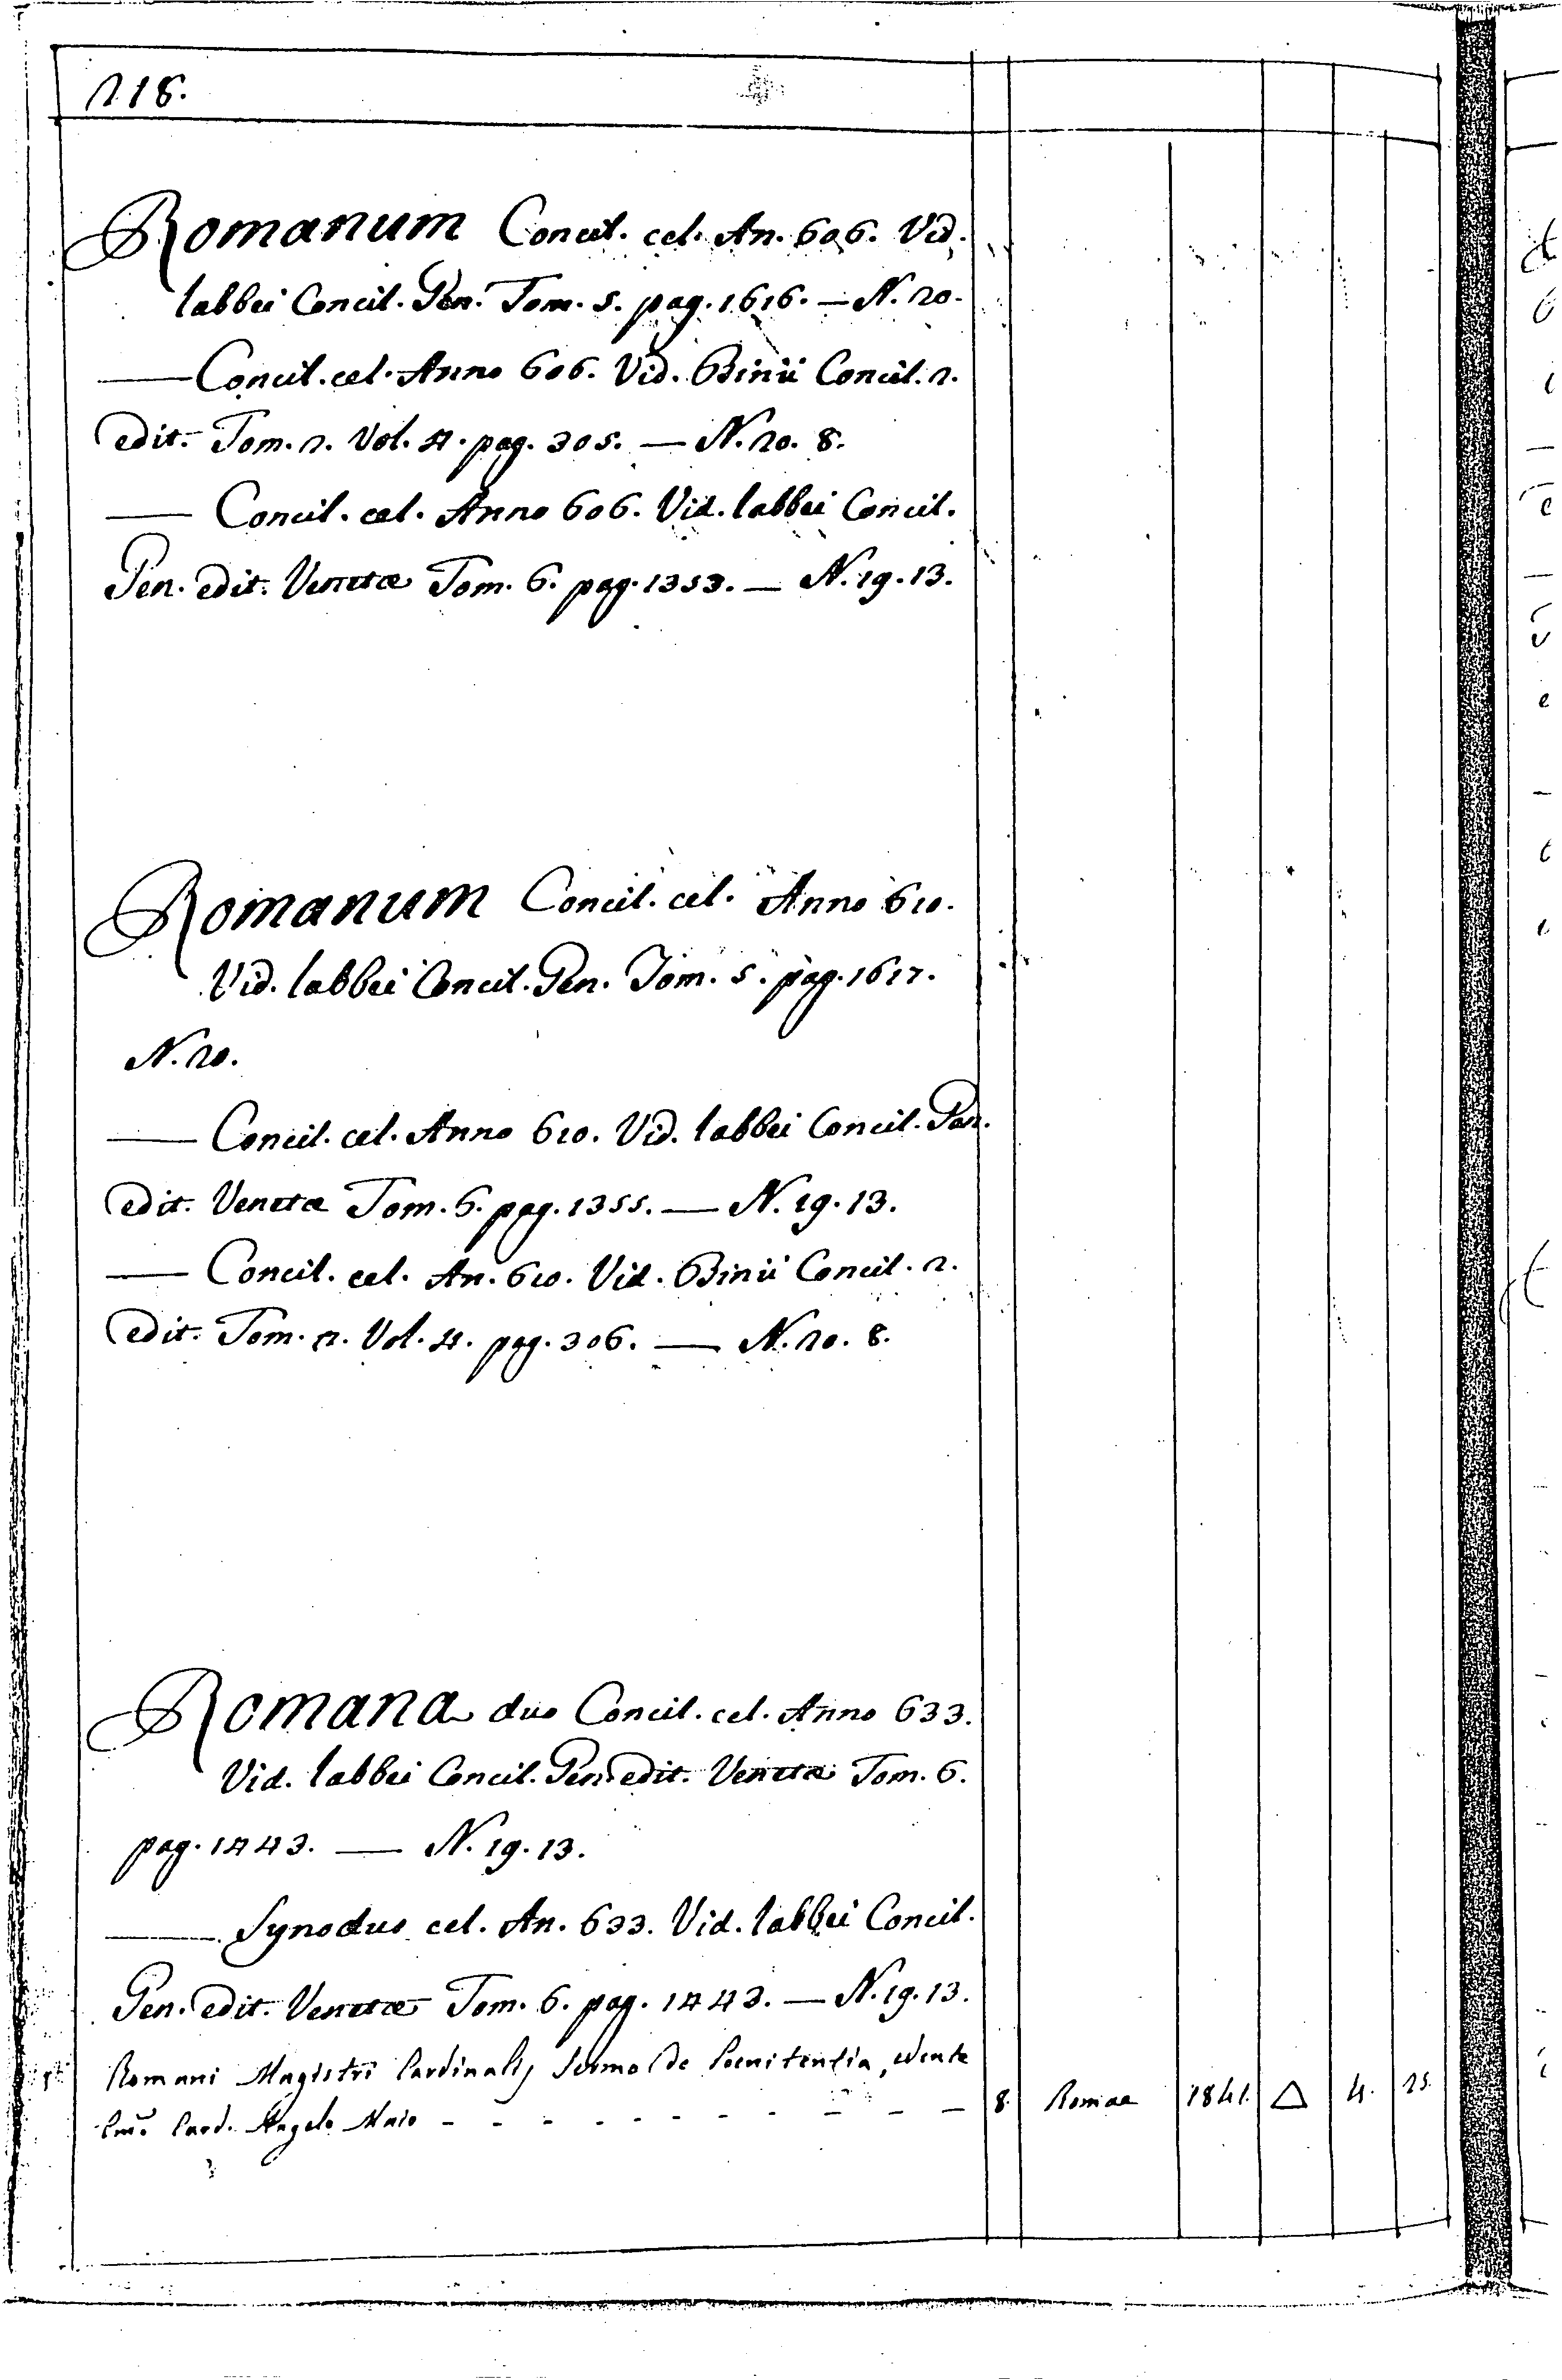 216.
Romanum Concil. cel. An. 606. Vid.
Labbei Concil. Gen. Tom. 5. pag. 1616. — N. 20.
— Concil. cel. Anno 606. Vid. Binii Concil. 2.
edit. Tom. 2. Vol. 4. pag. 305. — N. 20. 8.
— Concil. cel. Anno 606. Vid. Labbei Concil.
Gen. edit. Venetæ Tom. 6. pag. 1353. — N. 19. 13.
Romanum Concil. cel. Anno 610.
Vid. Labbei Concil. Gen. Tom. 5. pag. 1617.
N. 20.
— Concil. cel. Anno 610. Vid. Labbei Concil. Gen.
edit. Venetæ Tom. 6. pag. 1355. — N. 19. 13.
— Concil. cel. An. 610. Vid. Binii Concil. 2.
edit. Tom. 2. Vol. 4. pag. 306. — N. 20. 8.
Romana duo Concil. cel. Anno 633.
Vid. Labbei Concil. Gen. edit. Venetæ Tom. 6.
pag. 1443. — N. 19. 13.
— Synodus cel. An. 633. Vid. Labbei Concil.
Gen. edit. Venetæ Tom. 6. pag. 1443. — N. 19. 13.
Romani Magistri Cardinalis Sermo de Poenitentia, edente
Emo. Card. Angelo Maio - - - - - - - - - - 8. Romae 1841. △ 4. 25.